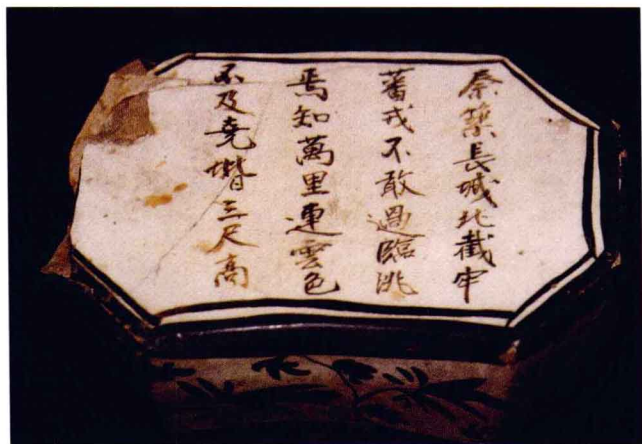 秦築長城比截牢
蕃戎不敢過臨洮
焉知萬里連雲色
不及堯堦三尺高